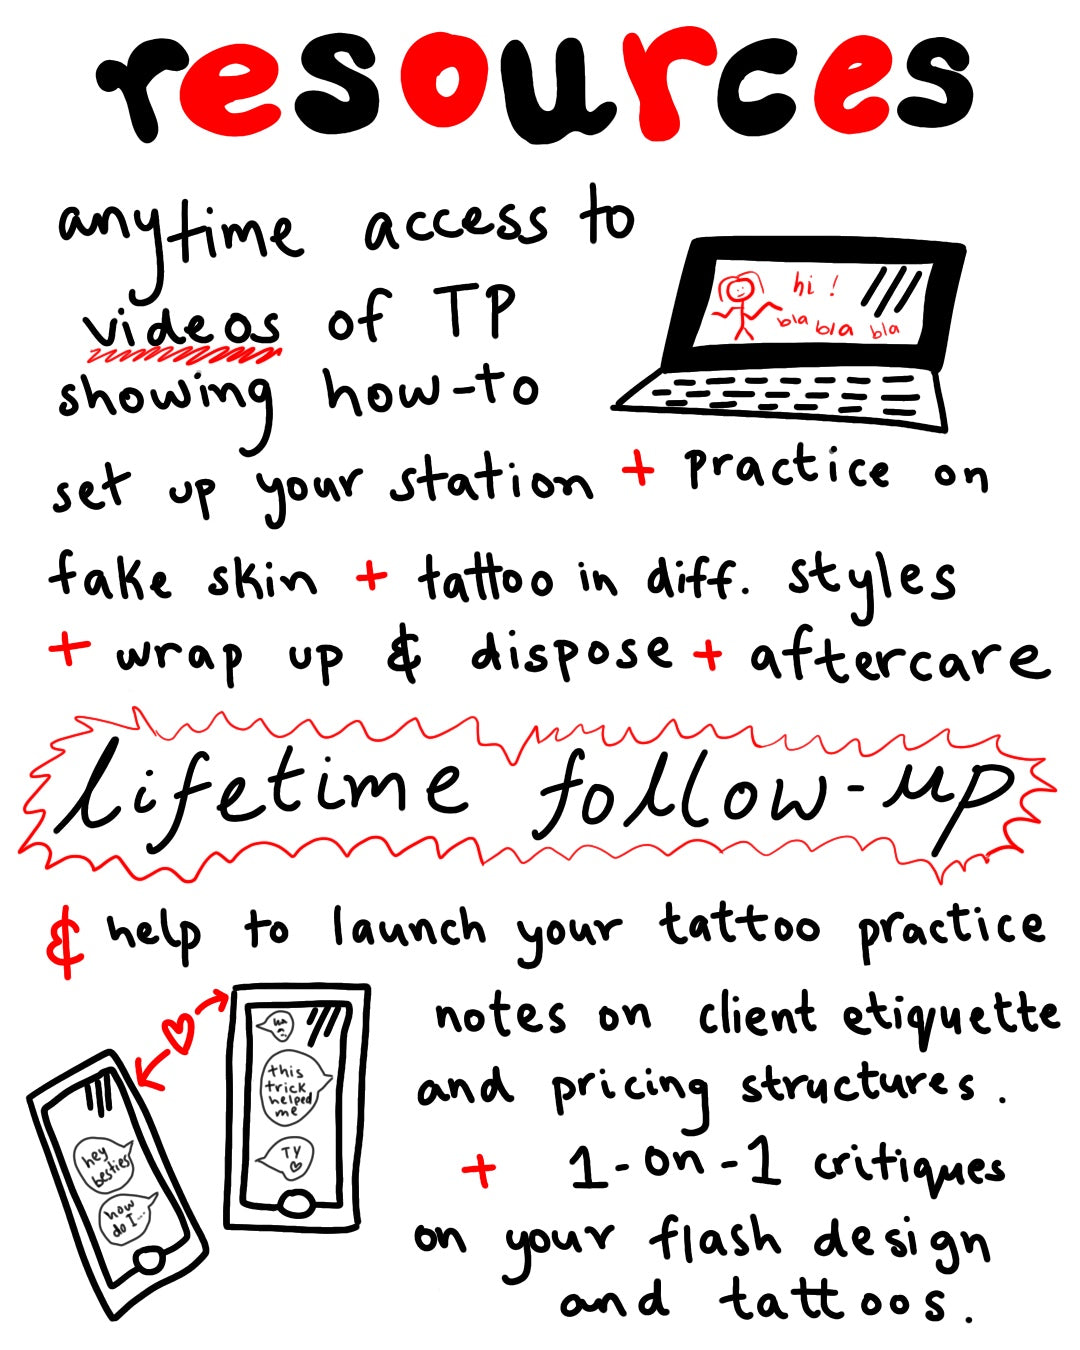 resources
anytime access to
videos of TP
showing how-to
hi !
bla bla bla
set up your station + practice on
fake skin + tattoo in diff. styles
+ wrap up & dispose + aftercare
lifetime follow-up
& help to launch your tattoo practice
notes on client etiquette
and pricing structures.
+ 1-on-1 critiques
on your flash design
and tattoos.
hey
besties
how
do I...
this
trick
helped
me
TY